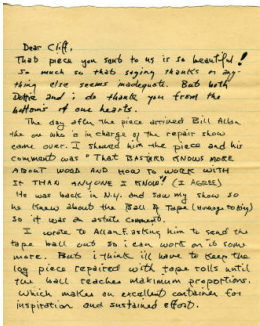 Dear Cliff,
That piece you sent to us is so beautiful!
So much so that saying thanks or any-
thing else seems inadequate. But both
Dottie and i do thank you from the
bottoms of our hearts.
The day after the piece arrived Bill Allen
the one who is in charge of the repair show
came over. I showed him the piece and his
comment was "THAT BASTARD KNOWS MORE
ABOUT WOOD AND HOW TO WORK WITH
IT THAN ANYONE I KNOW!" (I AGREE)
He was back in N.Y. and saw my show so
he knew about the Ball & Tape
So it was an astute comment.
I wrote to Allan F. asking him to send the
tape ball out so i can work on it some
more. But i think ill have to keep the
log piece repaired with tape rolls until
the ball reaches maximum proportions.
Which makes an excellent container for
inspiration and sustained effort.